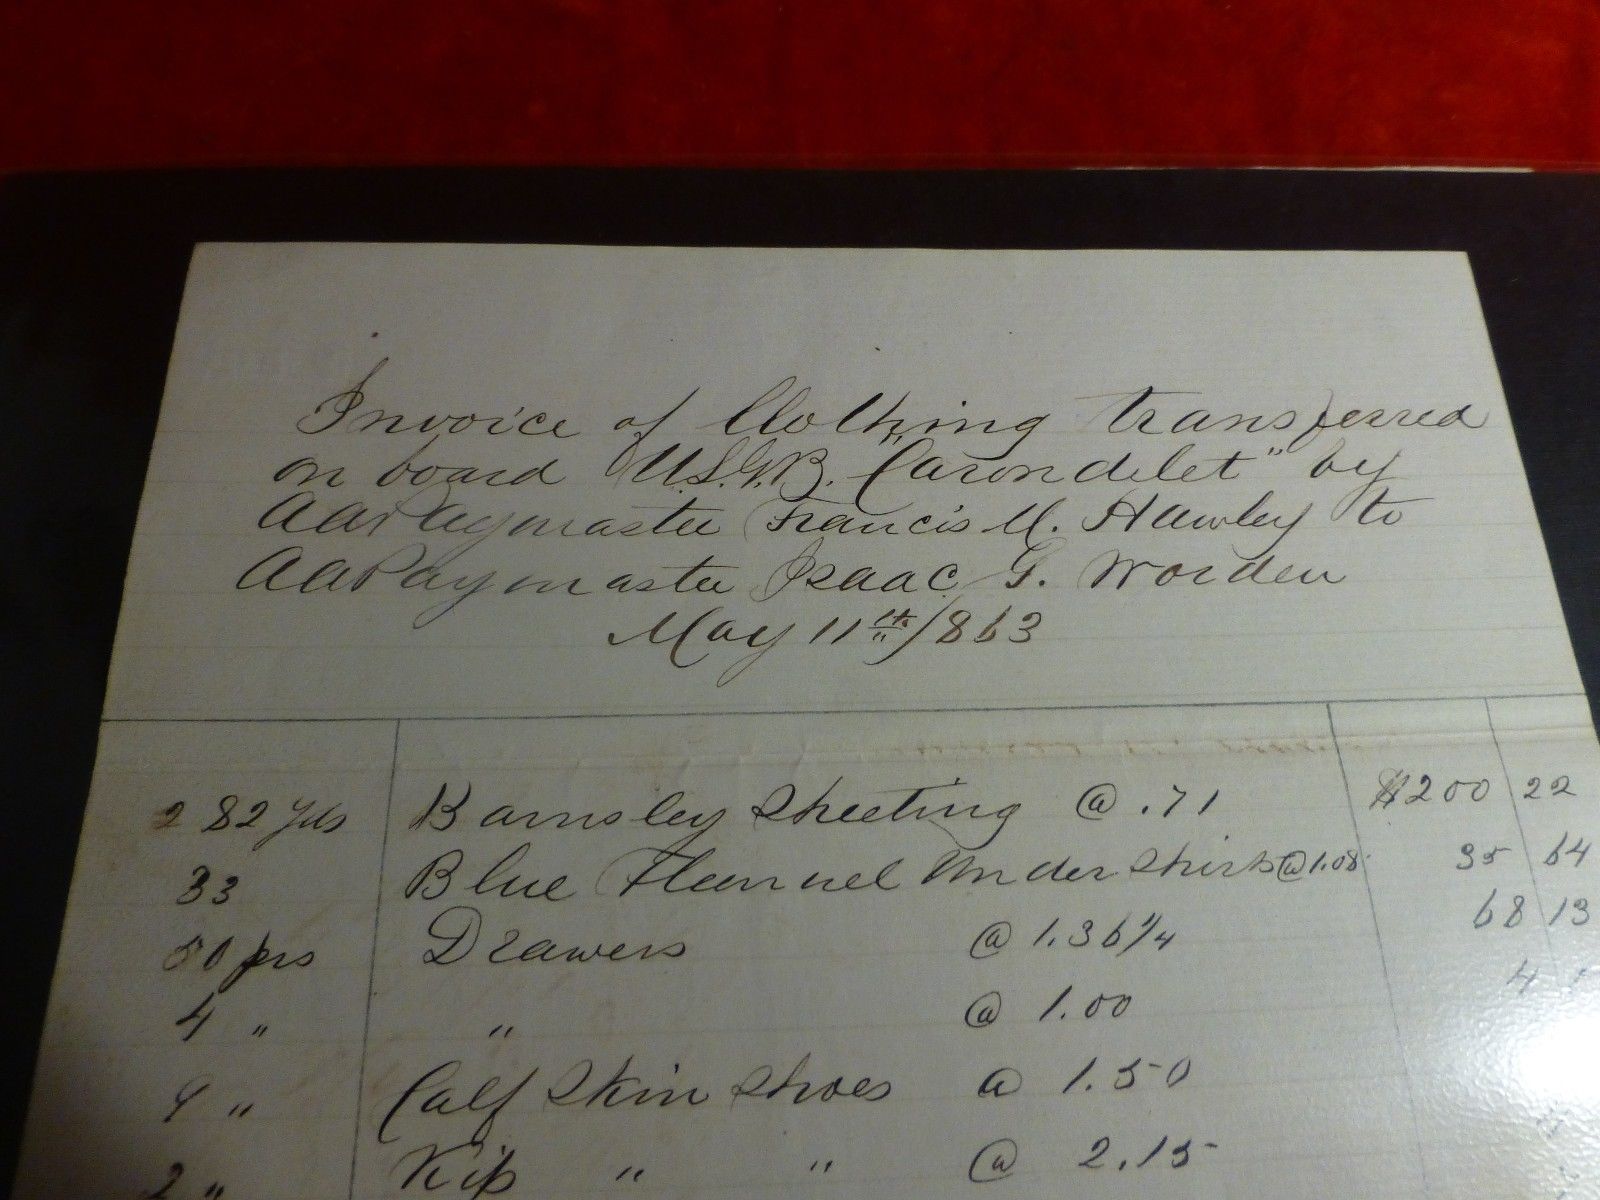 Invoice of Clothing transferred
on board "U.S.G.B. Carondelet" by
AAPaymaster Francis M. Hawley to
AAPaymaster Isaac G. Worden
May 11th /863
282 Yds Barnsley Sheeting @ .71 $200 22
33 Blue Flannel Under Shirts @ 1.08 35 64
50 prs Drawers @ 1.36 1/4 68 13
4 " " @ 1.00 4
9 " Calf Skin Shoes @ 1.50
2 " Kip " " @ 2.15